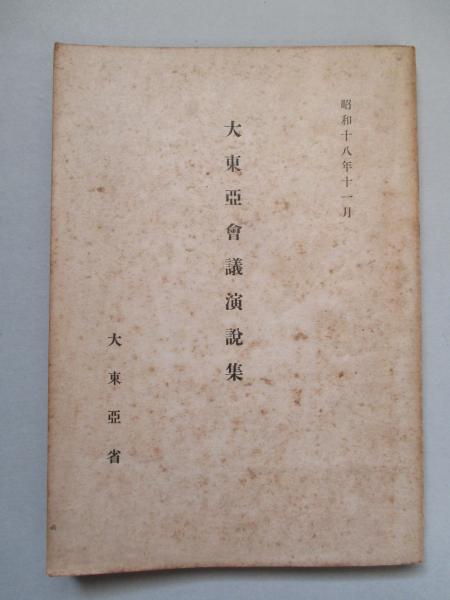 昭和十八年十一月
大東亞會議演說集
大東亞省